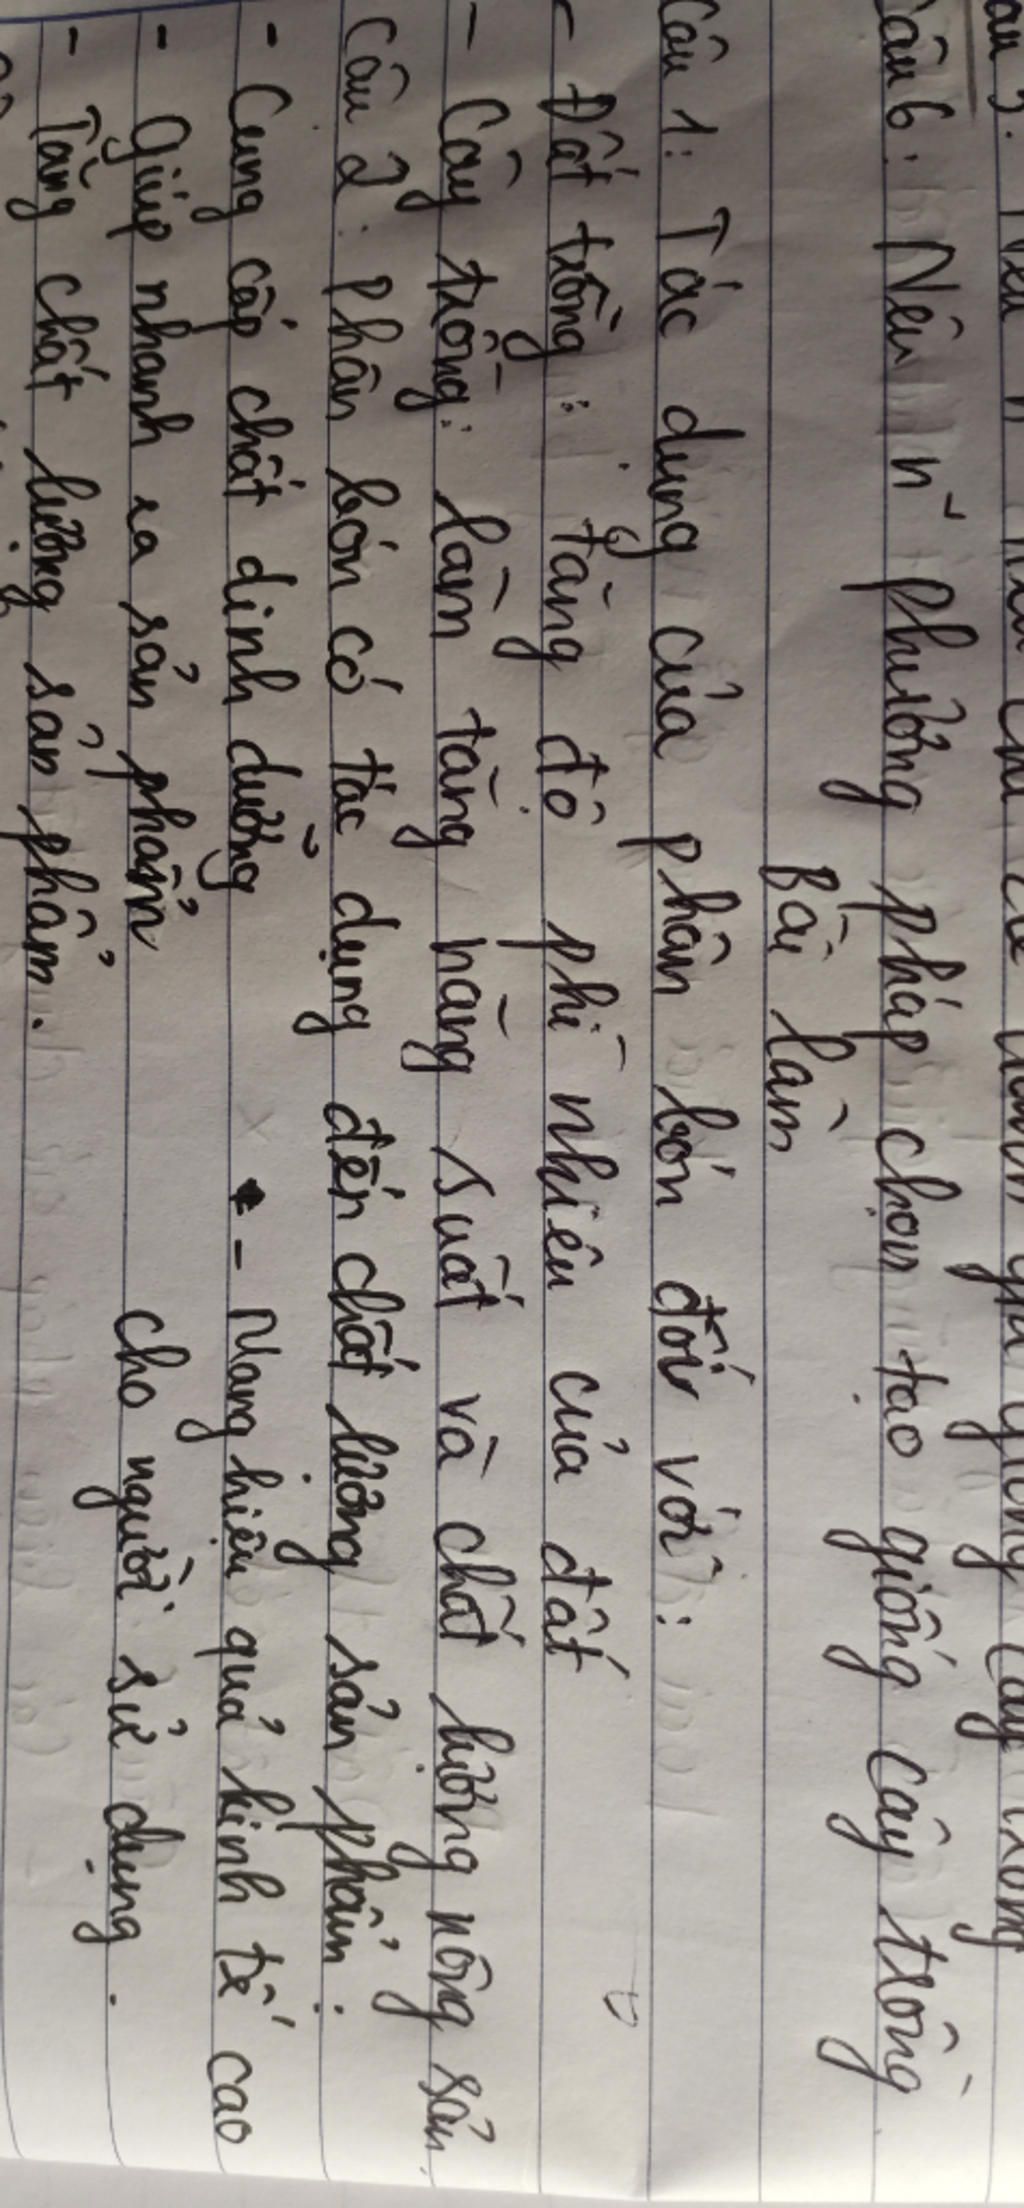 Câu 6: Nêu n² phương pháp chọn tạo giống cây trồng
Bài làm
Câu 1: Tác dụng của phân bón đối với:
- Đất trồng: tăng độ phì nhiêu của đất
- Cây trồng: làm tăng năng suất và chất lượng nông sản.
Câu 2: phân bón có tác dụng đến chất lượng sản phẩm:
- Cung cấp chất dinh dưỡng - Mang hiệu quả kinh tế cao
- Giúp nhanh ra sản phẩm cho người sử dụng.
- Tăng chất lượng sản phẩm.